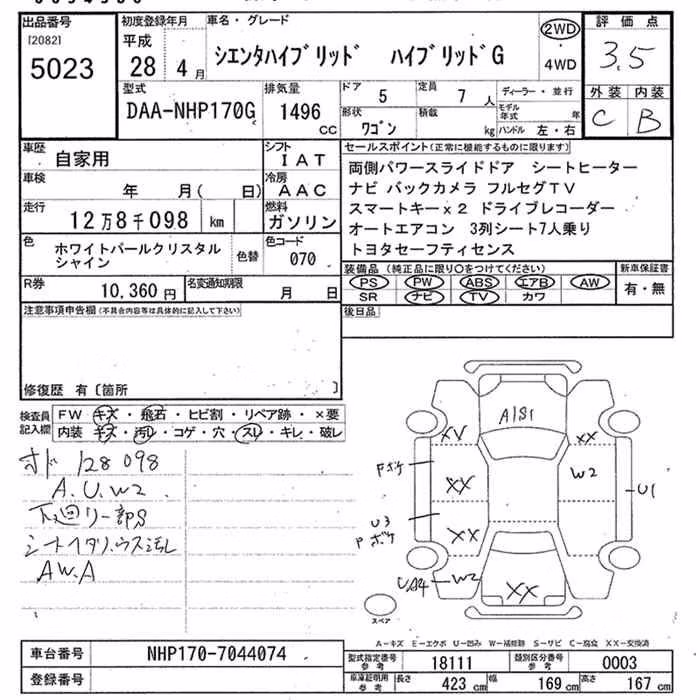 出品番号
[2082]
5023
初度登録年月
平成
28年 4月
車名・グレード
シエンタハイブリッド ハイブリッドG
2WD
・
4WD
評価点
3.5
外装 内装
C B
型式
DAA-NHP170G
排気量
1496
cc
ドア 5
定員 7人
形状 ワゴン
積載 kg
ディーラー・並行
モデル年式 年
ハンドル 左・右
車歴 自家用
シフト IAT
車検 年 月( 日)
冷房 AAC
走行 12万8千098 km
燃料 ガソリン
色 ホワイトパールクリスタルシャイン
色替
色コード 070
R券 10,360円
名変通知期限 月 日
セールスポイント(正常に機能するものに限ります)
両側パワースライドドア シートヒーター
ナビ バックカメラ フルセグTV
スマートキーx2 ドライブレコーダー
オートエアコン 3列シート7人乗り
トヨタセーフティセンス
装備品(純正品に限り○をつけてください)
PS PW ABS エアB AW
SR ナビ TV カワ
新車保証書
有・無
注意事項申告欄(不具合内容等は具体的に記入して下さい)
後日品
修復歴 有〔箇所 〕
検査員記入欄
FW キズ・飛石・ヒビ割・リペア跡・×要
内装 キズ・汚レ・コゲ・穴・スレ・キレ・破レ
オド 128098
A.U.W2
下廻リ一部S
AW.A
A1S1
XV
XX
Pボケ
XX
W2
U1
U3
Pボケ
XX
UA4
W2
XX
スペア
A-キズ E-エクボ U-凹み W-補修跡 S-サビ C-腐食 XX-交換済
車台番号 NHP170-7044074
登録番号
型式指定番号 参考 18111
類別区分番号 参考 0003
車庫証明用 参考
長さ 423 cm
幅 169 cm
高さ 167 cm